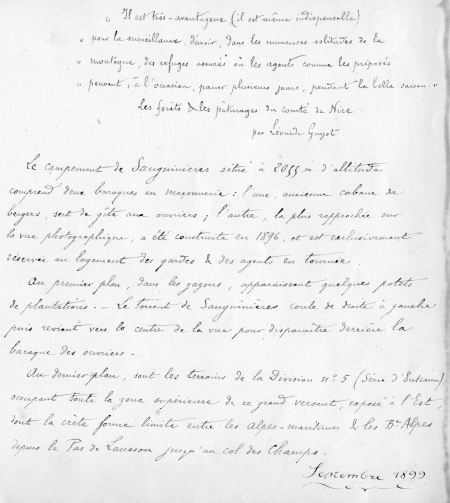 " Il est très-avantageux (il est même indispensable)
" pour la surveillance, d'avoir, dans les immenses solitudes de la
" montagne, des refuges assurés où les agents comme les préposés
" peuvent, à l'occasion, passer plusieurs jours, pendant la belle saison. "
Les forêts & les pâturages du comté de Nice.
par Léonide Guyot.
Le campement de Sanguinières situé à 2055 m d'altitude
comprend deux baraques en maçonnerie : l'une, ancienne cabane de
bergers, sert de gîte aux ouvriers ; l'autre, la plus rapprochée sur
la vue photographique, a été construite en 1896, et est exclusivement
réservée au logement des gardes & des agents en tournée.
Au premier plan, dans les gazons, apparaissent quelques potets
de plantations. - Le torrent de Sanguinières coule de droite à gauche
puis revient vers le centre de la vue pour disparaître derrière la
baraque des ouvriers.
Au dernier plan, sont les terrains de la Division n° 5 (Série d'Entraunes)
occupant toute la zone supérieure de ce grand versant, exposé à l'Est,
dont la crête forme limite entre les Alpes-maritimes & les Bses Alpes
depuis le Pas de Lausson jusqu'au col des Champs.
Septembre 1899